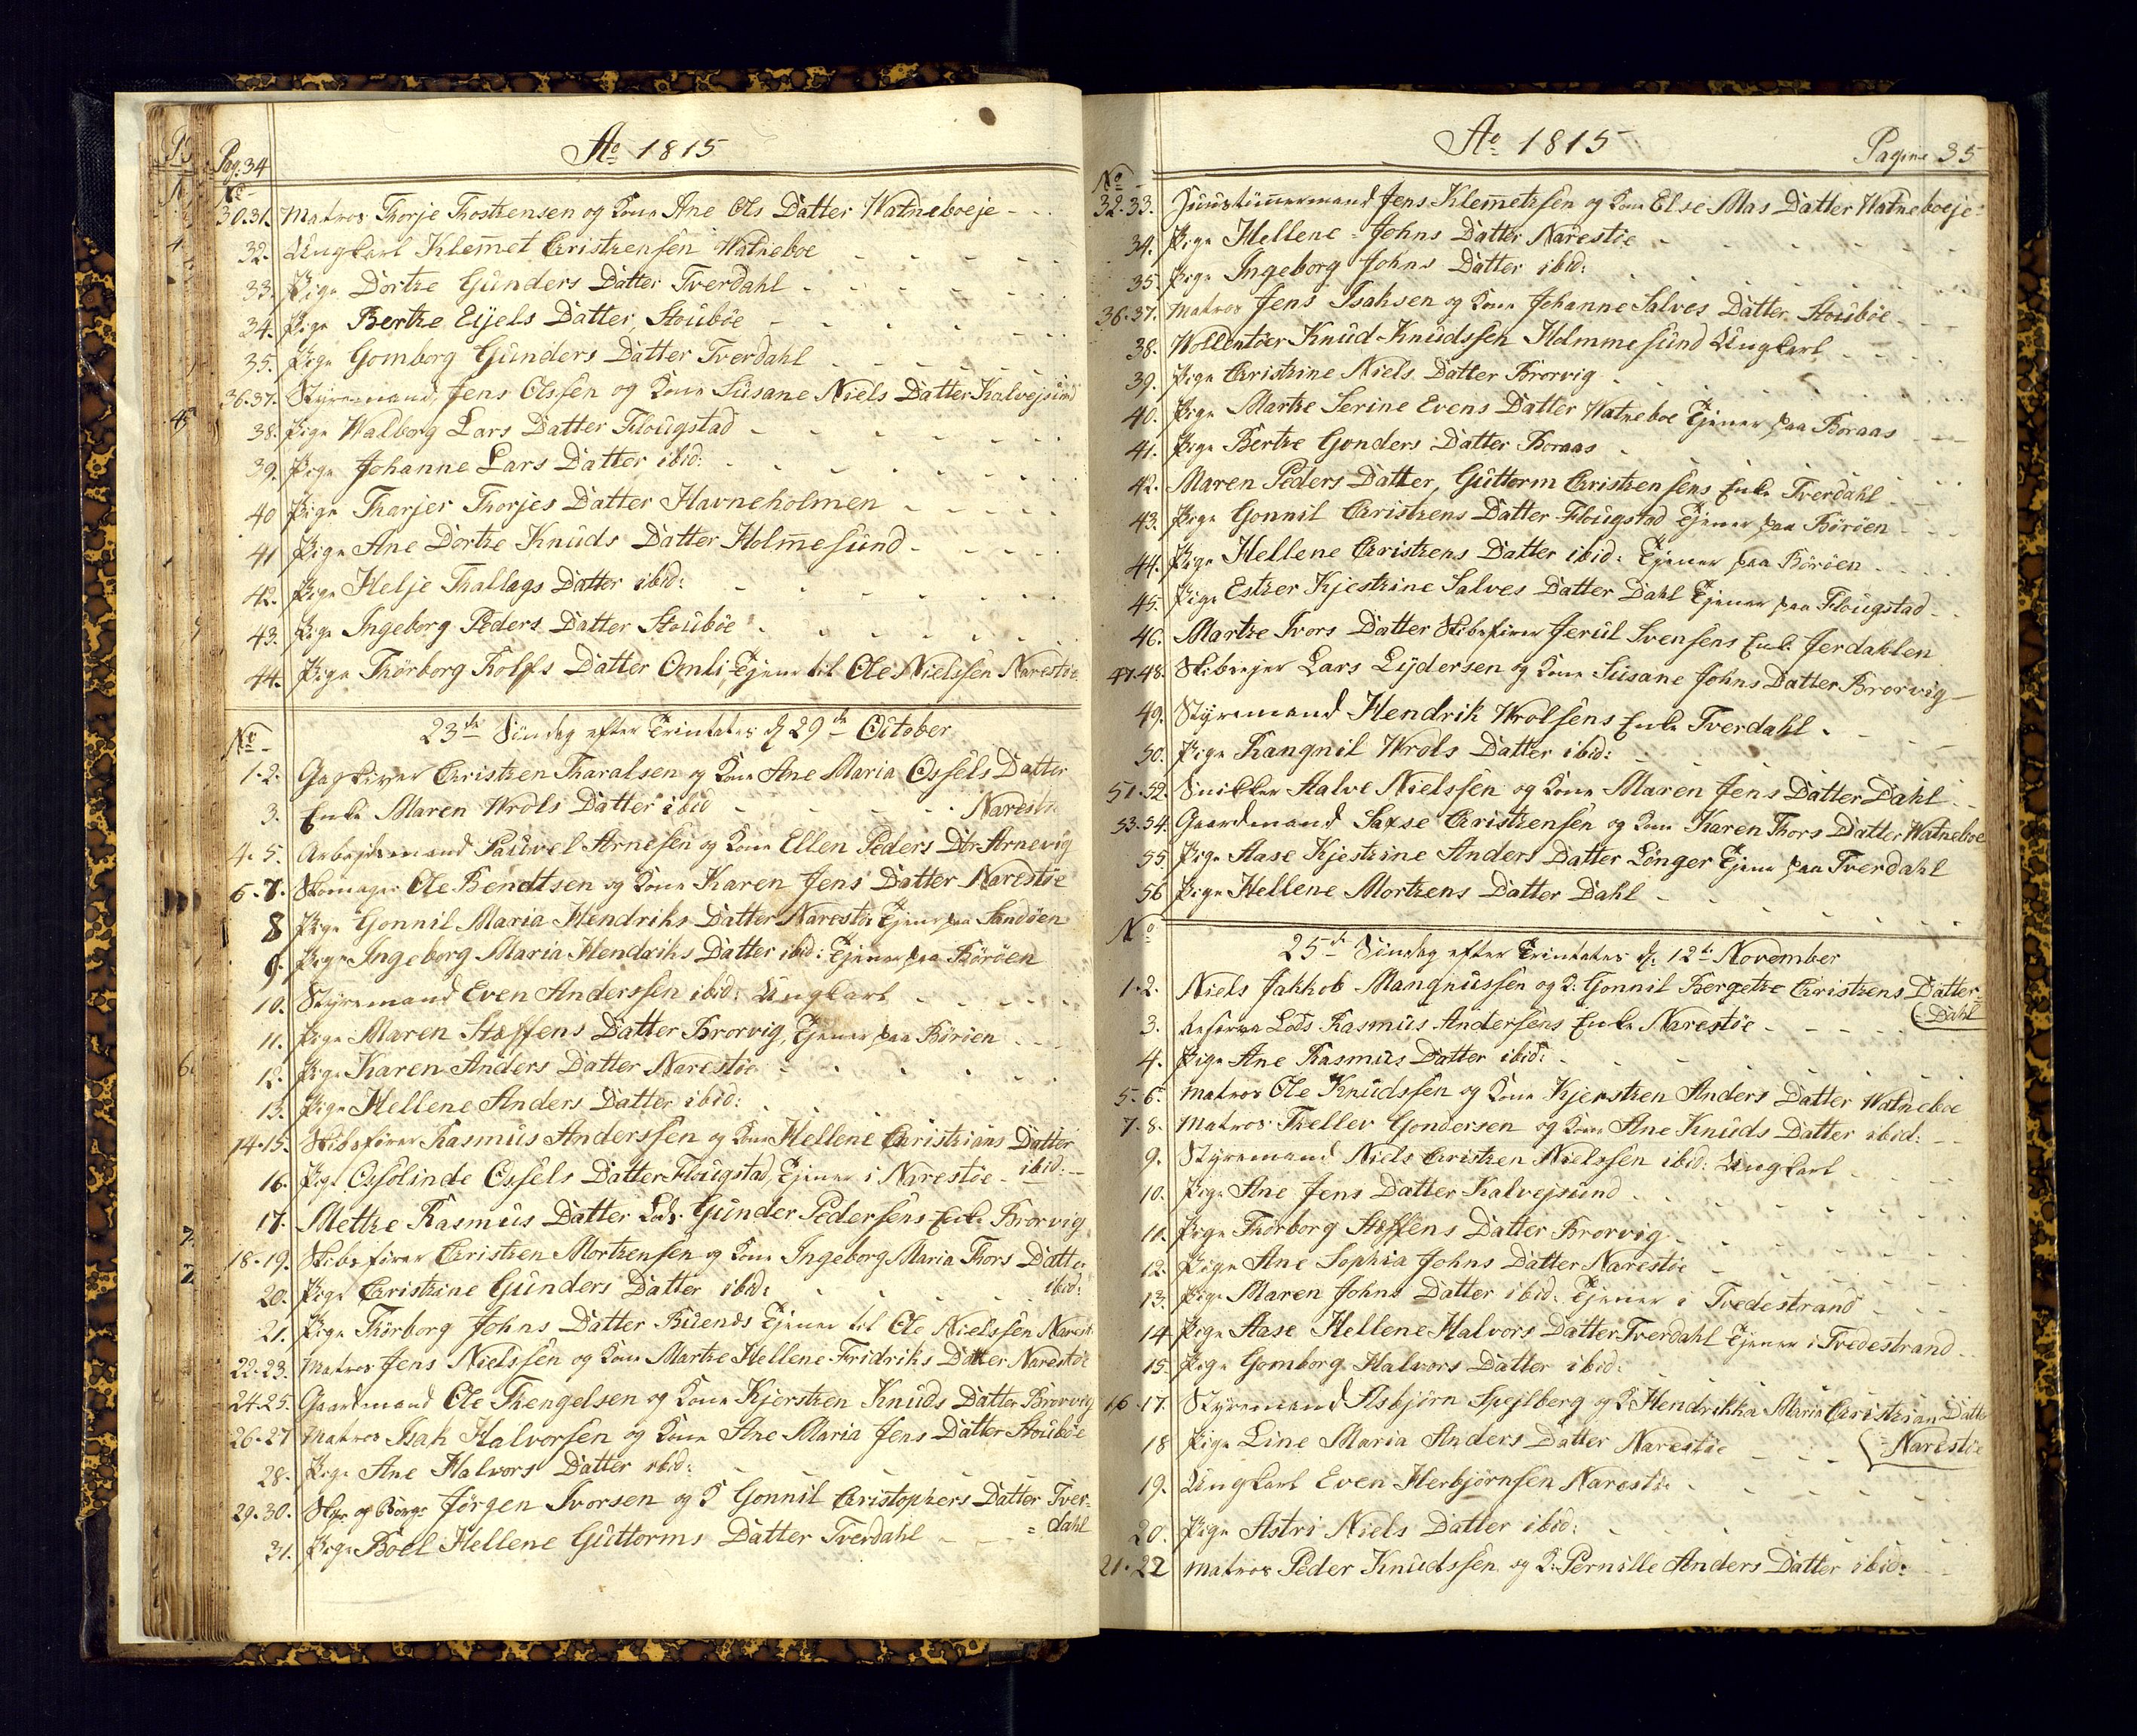 Pag. 34
Ao 1815
No
30.31. Matros Thorje Thostensen og Kone Ane Ols Datter Watneboeje
32. Ungkarl Klemet Christensen Watneboe
33. Pige Dorthe Gunders Datter Tverdahl
34. Pige Berthe Eijels Datter, Stoubøe
35. Pige Gomborg Gunders Datter Tverdahl
36.37. Styremand, Jens Olssen og Kone Susane Niels Datter Kalvejsund
38. Pige Walborg Lars Datter Flougstad
39. Pige Johanne Lars Datter ibid:
40 Pige Tharjer Thorjes Datter Havneholmen
41 Pige Ane Dorthe Knuds Datter Holmesund
42. Pige Helje Thallags Datter ibid:
43. Pige Ingeborg Peders Datter Stoubøe
44. Pige Thørborg Rolfs Datter Omli, Tjener til Ole Nielssen Narestøe
No 23de Søndag efter Trinitatis d 29de October
1.2. Christen Tharalsen og Kone Ane Maria Ossels Datter
3. Enke Maren Wrols Datter ibid Narestøe
4.5. Arbejdsmand Pauwel Arnesen og Kone Ellen Peders Dtr Arnevig
6.7. Skomager Ole Bendtsen og Kone Karen Jens Datter Narestøe
8 Pige Gonnil Maria Hendriks Datter Narestøe Tjener paa Sandøen
9. Pige Ingeborg Maria Hendriks Datter ibid: Tjener paa Børøen
10. Styremand Even Anderssen ibid: Ungkarl
11. Pige Maren Steffens Datter Brorvig, Tjener paa Børøen
12. Pige Karen Anders Datter Narestøe
13. Pige Hellene Anders Datter ibid:
14.15. Skibsfører Rasmus Anderssen og Kone Hellene Christians Datter
16. Pige Ossolinde Ossels Datter Flougstad, Tjener i Narestøe ibid:
17. Metthe Rasmus Datter Lods Gunder Pedersens Enke Brorvig
18.19. Skibsfører Christen Mortensen og Kone Ingeborg Maria Thors Datter
20. Pige Christine Gunders Datter ibid: ibid:
21. Pige Thørborg Johns Datter Buends Tjener til Ole Nielssen Narest:
22.23. Matros Jens Nielssen og Kone Marthe Hellene Fridriks Datter Narestøe
24.25. Gaardmand Ole Thengelsen og Kone Kjersthen Knuds Datter Brorvig
26.27 Matros Isak Halvorsen og Kone Ane Maria Jens Datter Stoubøe
28. Pige Ane Halvors Datter ibid:
29.30. Skpr og Borgr Jørgen Ivorsen og K Gonnil Christophers Datter Tver=
=dahl
31. Pige Boel Hellene Guttorms Datter Tverdahl
Ao 1815
Pagina 35
No
32.33. Huustømermand Jens Klemetsen og Kone Else Mas Datter Watneboeje
34. Pige Hellene Johns Datter Narestøe
35. Pige Ingeborg Johns Datter ibid:
36.37. Matros Jens Isaksen og Kone Johanne Salves Datter Stoubøe
38. Wollentøer Knud Knudssen Holmmesund Ungkarl
39. Pige Christine Niels Datter Brorvig
40. Pige Marthe Serine Evens Datter Watneboe Tjener paa Boraas
41. Pige Berthe Gonders Datter Boraas
42. Maren Peders Datter, Guttorm Christensens Enke Tverdahl
43. Pige Gonnil Christens Datter Flougstad Tjener paa Børøen
44. Pige Hellene Christens Datter ibid: Tjener paa Børøen
45. Pige Esther Kjestine Salves Datter Dahl Tjener paa Flougstad
46. Marthe Ivors Datter Skibsfører Jerul Svensens Enke Jerdahlen
47.48. Skibsejer Lars Lydersen og Kone Susane Johns Datter Brorvig
49. Styremand Hendrik Wrolsens Enke Tverdahl
50. Pige Rangnil Wrols Datter ibid:
51.52. Snikker Halve Nielssen og Kone Maren Jens Datter Dahl
53.54. Gaardmand Saxse Christensen og Kone Karen Thors Datter Watneboe
55 Pige Aase Kjestine Anders Datter Longer Tjener paa Tverdahl
56 Pige Hellene Mortens Datter Dahl
No
25de Søndag efter Trinitatis d: 12te November
1.2. Niels Jakkob Mangnussen og K: Gonnil Bergethe Christens Datter
Dahl
3. Lods Rasmus Andersens Enke Narestøe
4. Pige Ane Rasmus Datter ibid:
5.6. Matros Ole Knudssen og Kone Kjersthen Anders Datter Watneboe
7.8. Matros Thellev Gondersen og Kone Ane Knuds Datter ibid:
9. Styremand Niels Christen Nielssen ibid: Ungkarl
10. Pige Ane Jens Datter Kalvejsund
11. Pige Thorborg Steffens Datter Brorvig
12. Pige Ane Sophia Johns Datter Narestøe
13. Pige Maren Johns Datter ibid: Tjener i Tvedestrand
14 Pige Aase Hellene Halvors Datter Tverdahl Tjener i Tvedestrand
15. Pige Gomborg Halvors Datter ibid:
16.17. Styremand Asbjørn Spejlberg og K: Hendrikka Maria Christian Datter
18 Pige Line Maria Anders Datter Narestøe Narestøe
19. Ungkarl Even Herbjørnsen Narestøe
20. Pige Astri Niels Datter ibid:
21.22 Matros Peder Knudssen og K: Pernille Anders Datter ibid: